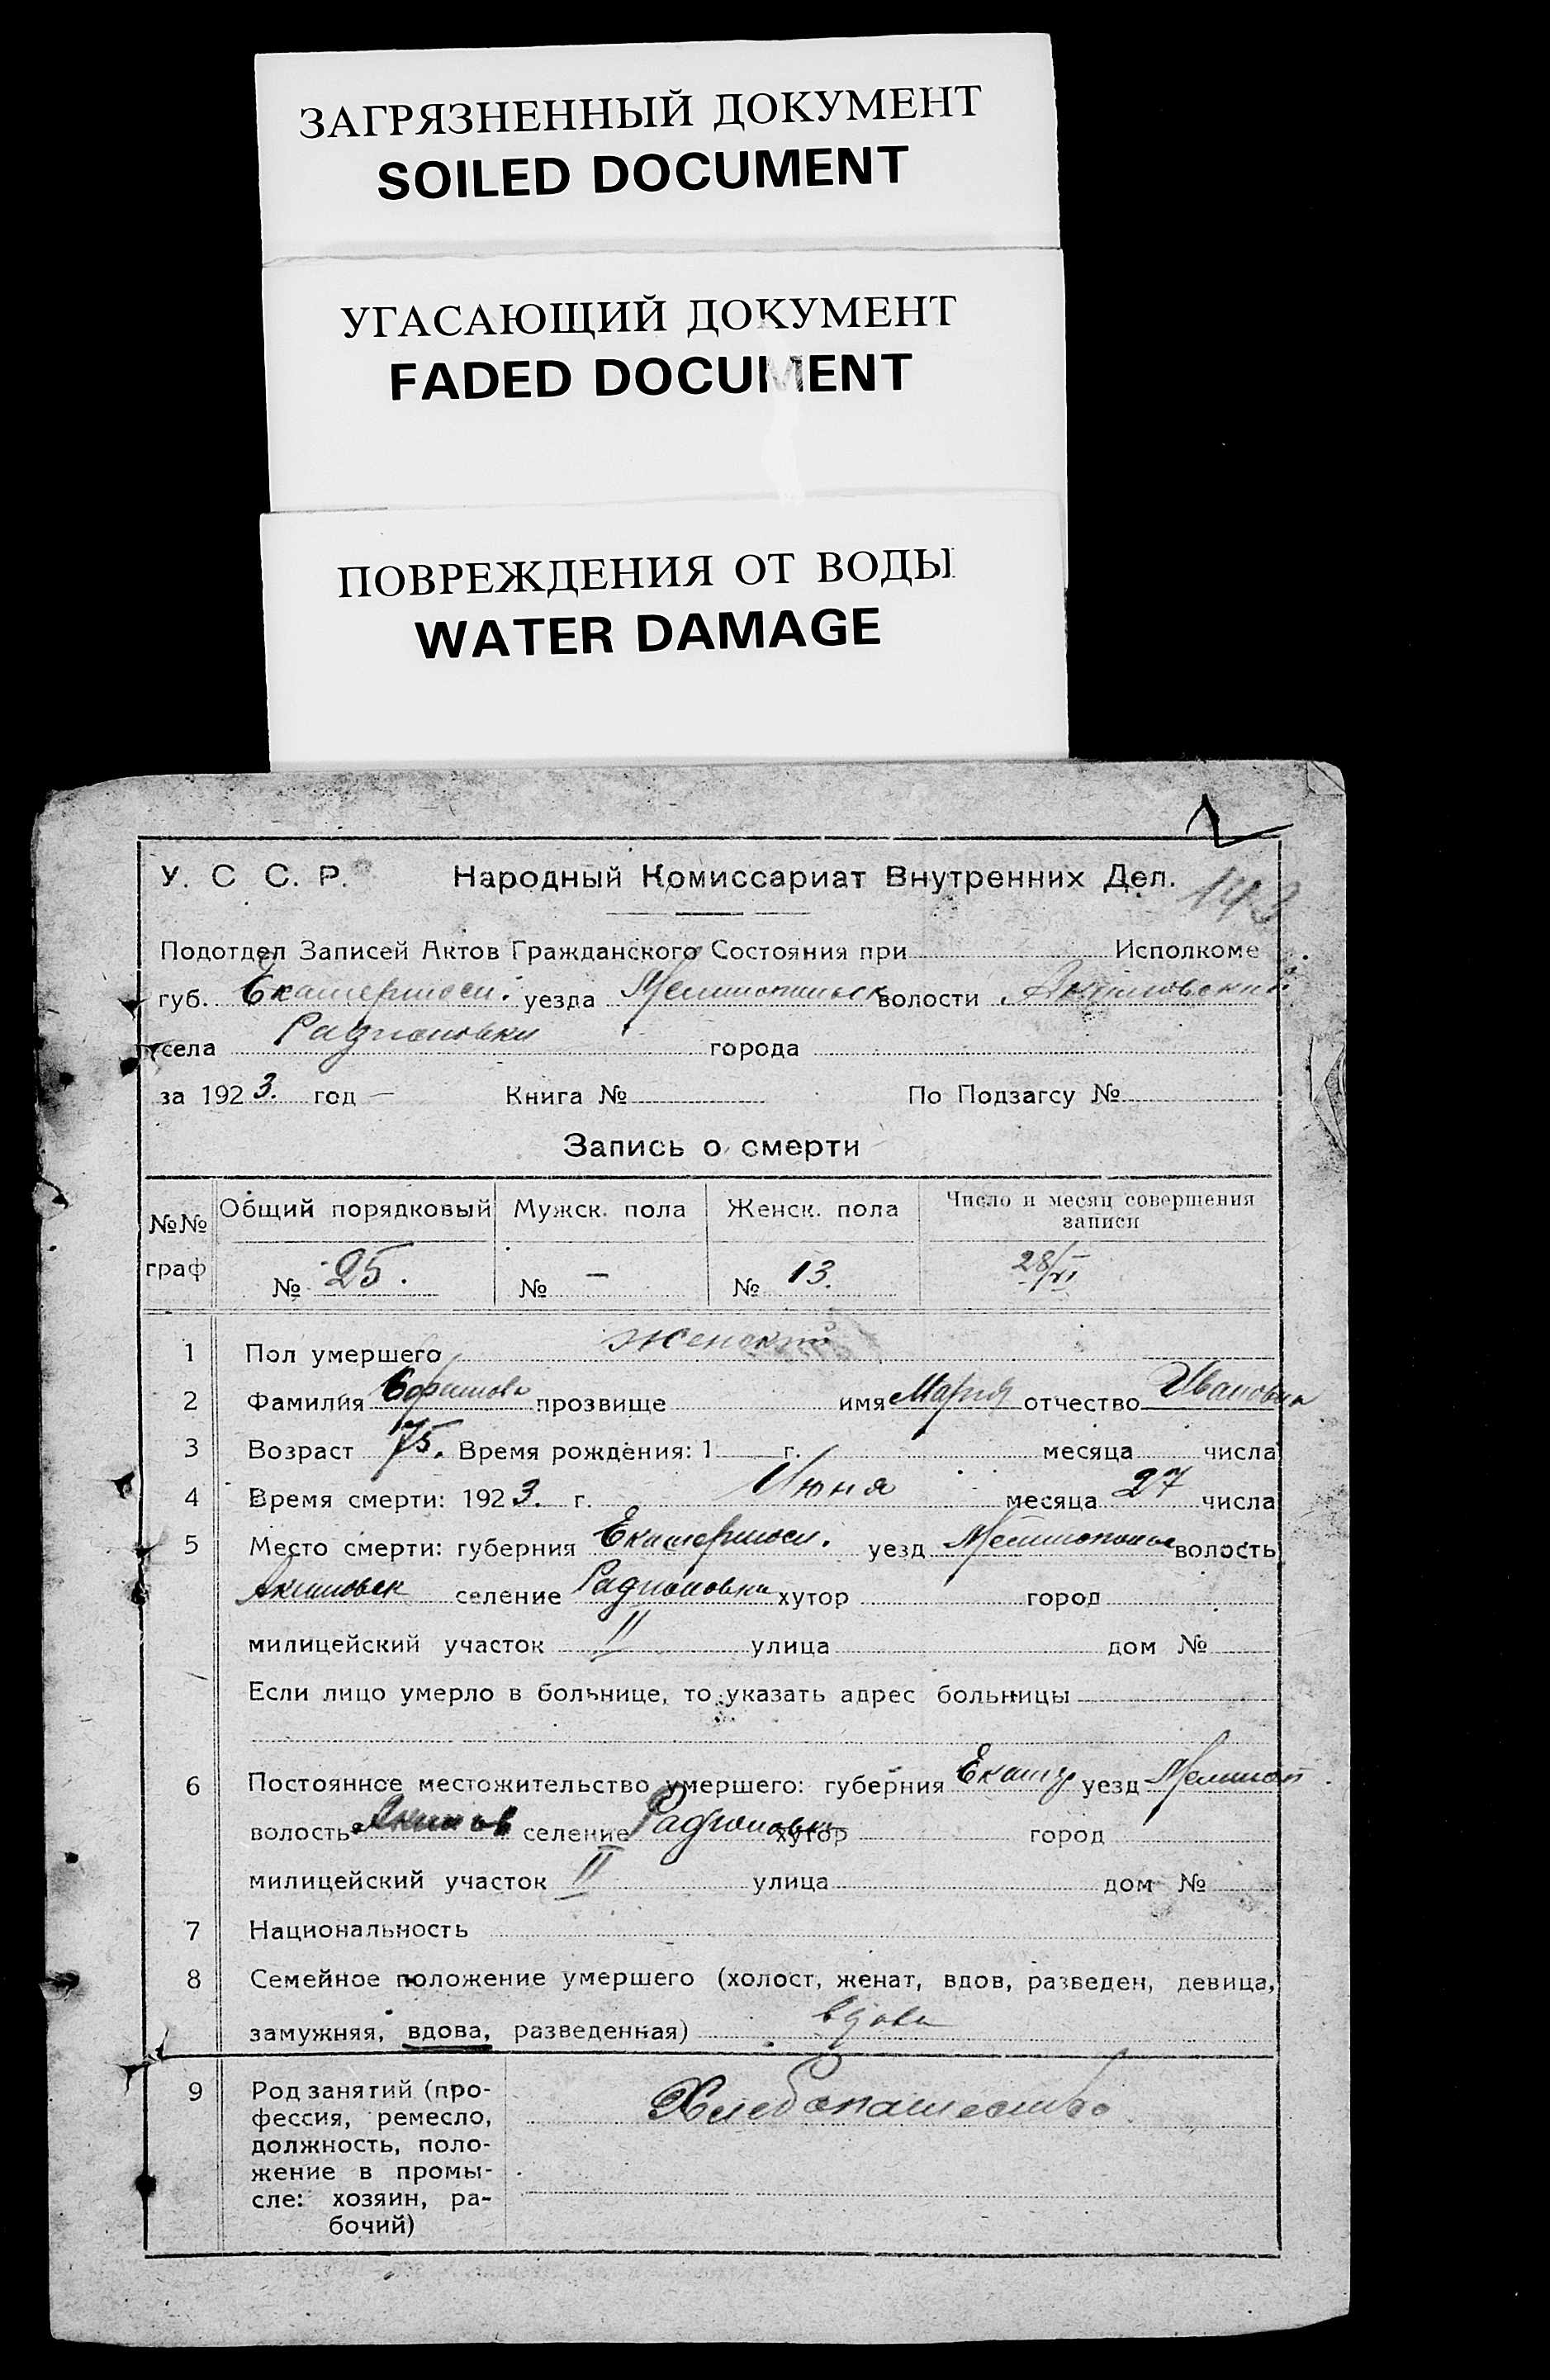 ЗАГРЯЗНЕННЫЙ ДОКУМЕНТ
SOILED DOCUMENT
УГАСАЮЩИЙ ДОКУМЕНТ
FADED DOCUMENT
ПОВРЕЖДЕНИЯ ОТ ВОДЫ
WATER DAMAGE
У. С С. Р. Народный Комиссариат Внутренних Дел.
143
Подотдел Записей Актов Гражданского Состояния при Исполкоме
губ. Екатериносл. уезда Мелитопольск волости Акимовский
села Радионовки города
за 1923. год — Книга № По Подзагсу №
Запись о смерти
№№ граф Общий порядковый Мужск. пола Женск. пола Число и месяц совершения записи
№ 25. № — № 13. 28/VI
1 Пол умершего женский
2 Фамилия Ефимова прозвище имя Мария отчество Ивановна
3 Возраст 75. Время рождения: 1 г. месяца числа
4 Время смерти: 1923. г. Июня месяца 27 числа
5 Место смерти: губерния Екатериносл. уезд Мелитопольс волость
Акимовск селение Радионовка хутор город
милицейский участок II улица дом №
Если лицо умерло в больнице, то указать адрес больницы
6 Постоянное местожительство умершего: губерния Екатер уезд Мелитоп
волость Акимов селение Радионовка хутор город
милицейский участок II улица дом №
7 Национальность
8 Семейное положение умершего (холост, женат, вдов, разведен, девица,
замужняя, вдова, разведенная) вдова
9 Род занятий (про-
фессия, ремесло,
должность, поло-
жение в промы-
сле: хозяин, ра-
бочий)
Хлебопашество